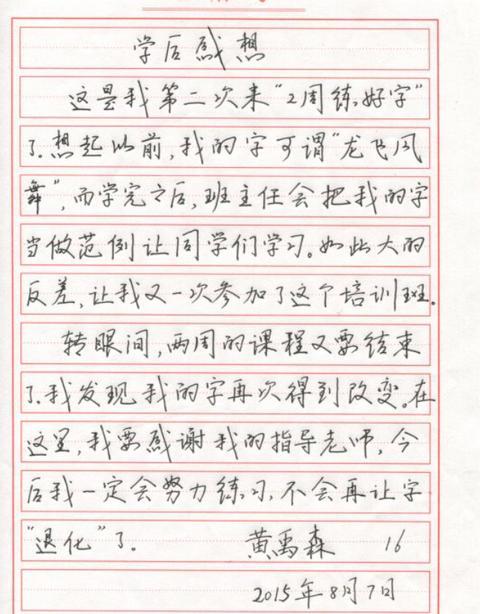 学后感想
这是我第二次来“2周练好字”
了.想起以前,我的字可谓“龙飞凤
舞”,而学完之后,班主任会把我的字
当做范例让同学们学习。如此大的
反差,让我又一次参加了这个培训班.
转眼间,两周的课程又要结束
了.我发现我的字再次得到改变。在
这里,我要感谢我的指导老师,今
后我一定会努力练习,不会再让字
“退化”了. 黄禹森 16
2015年8月7日